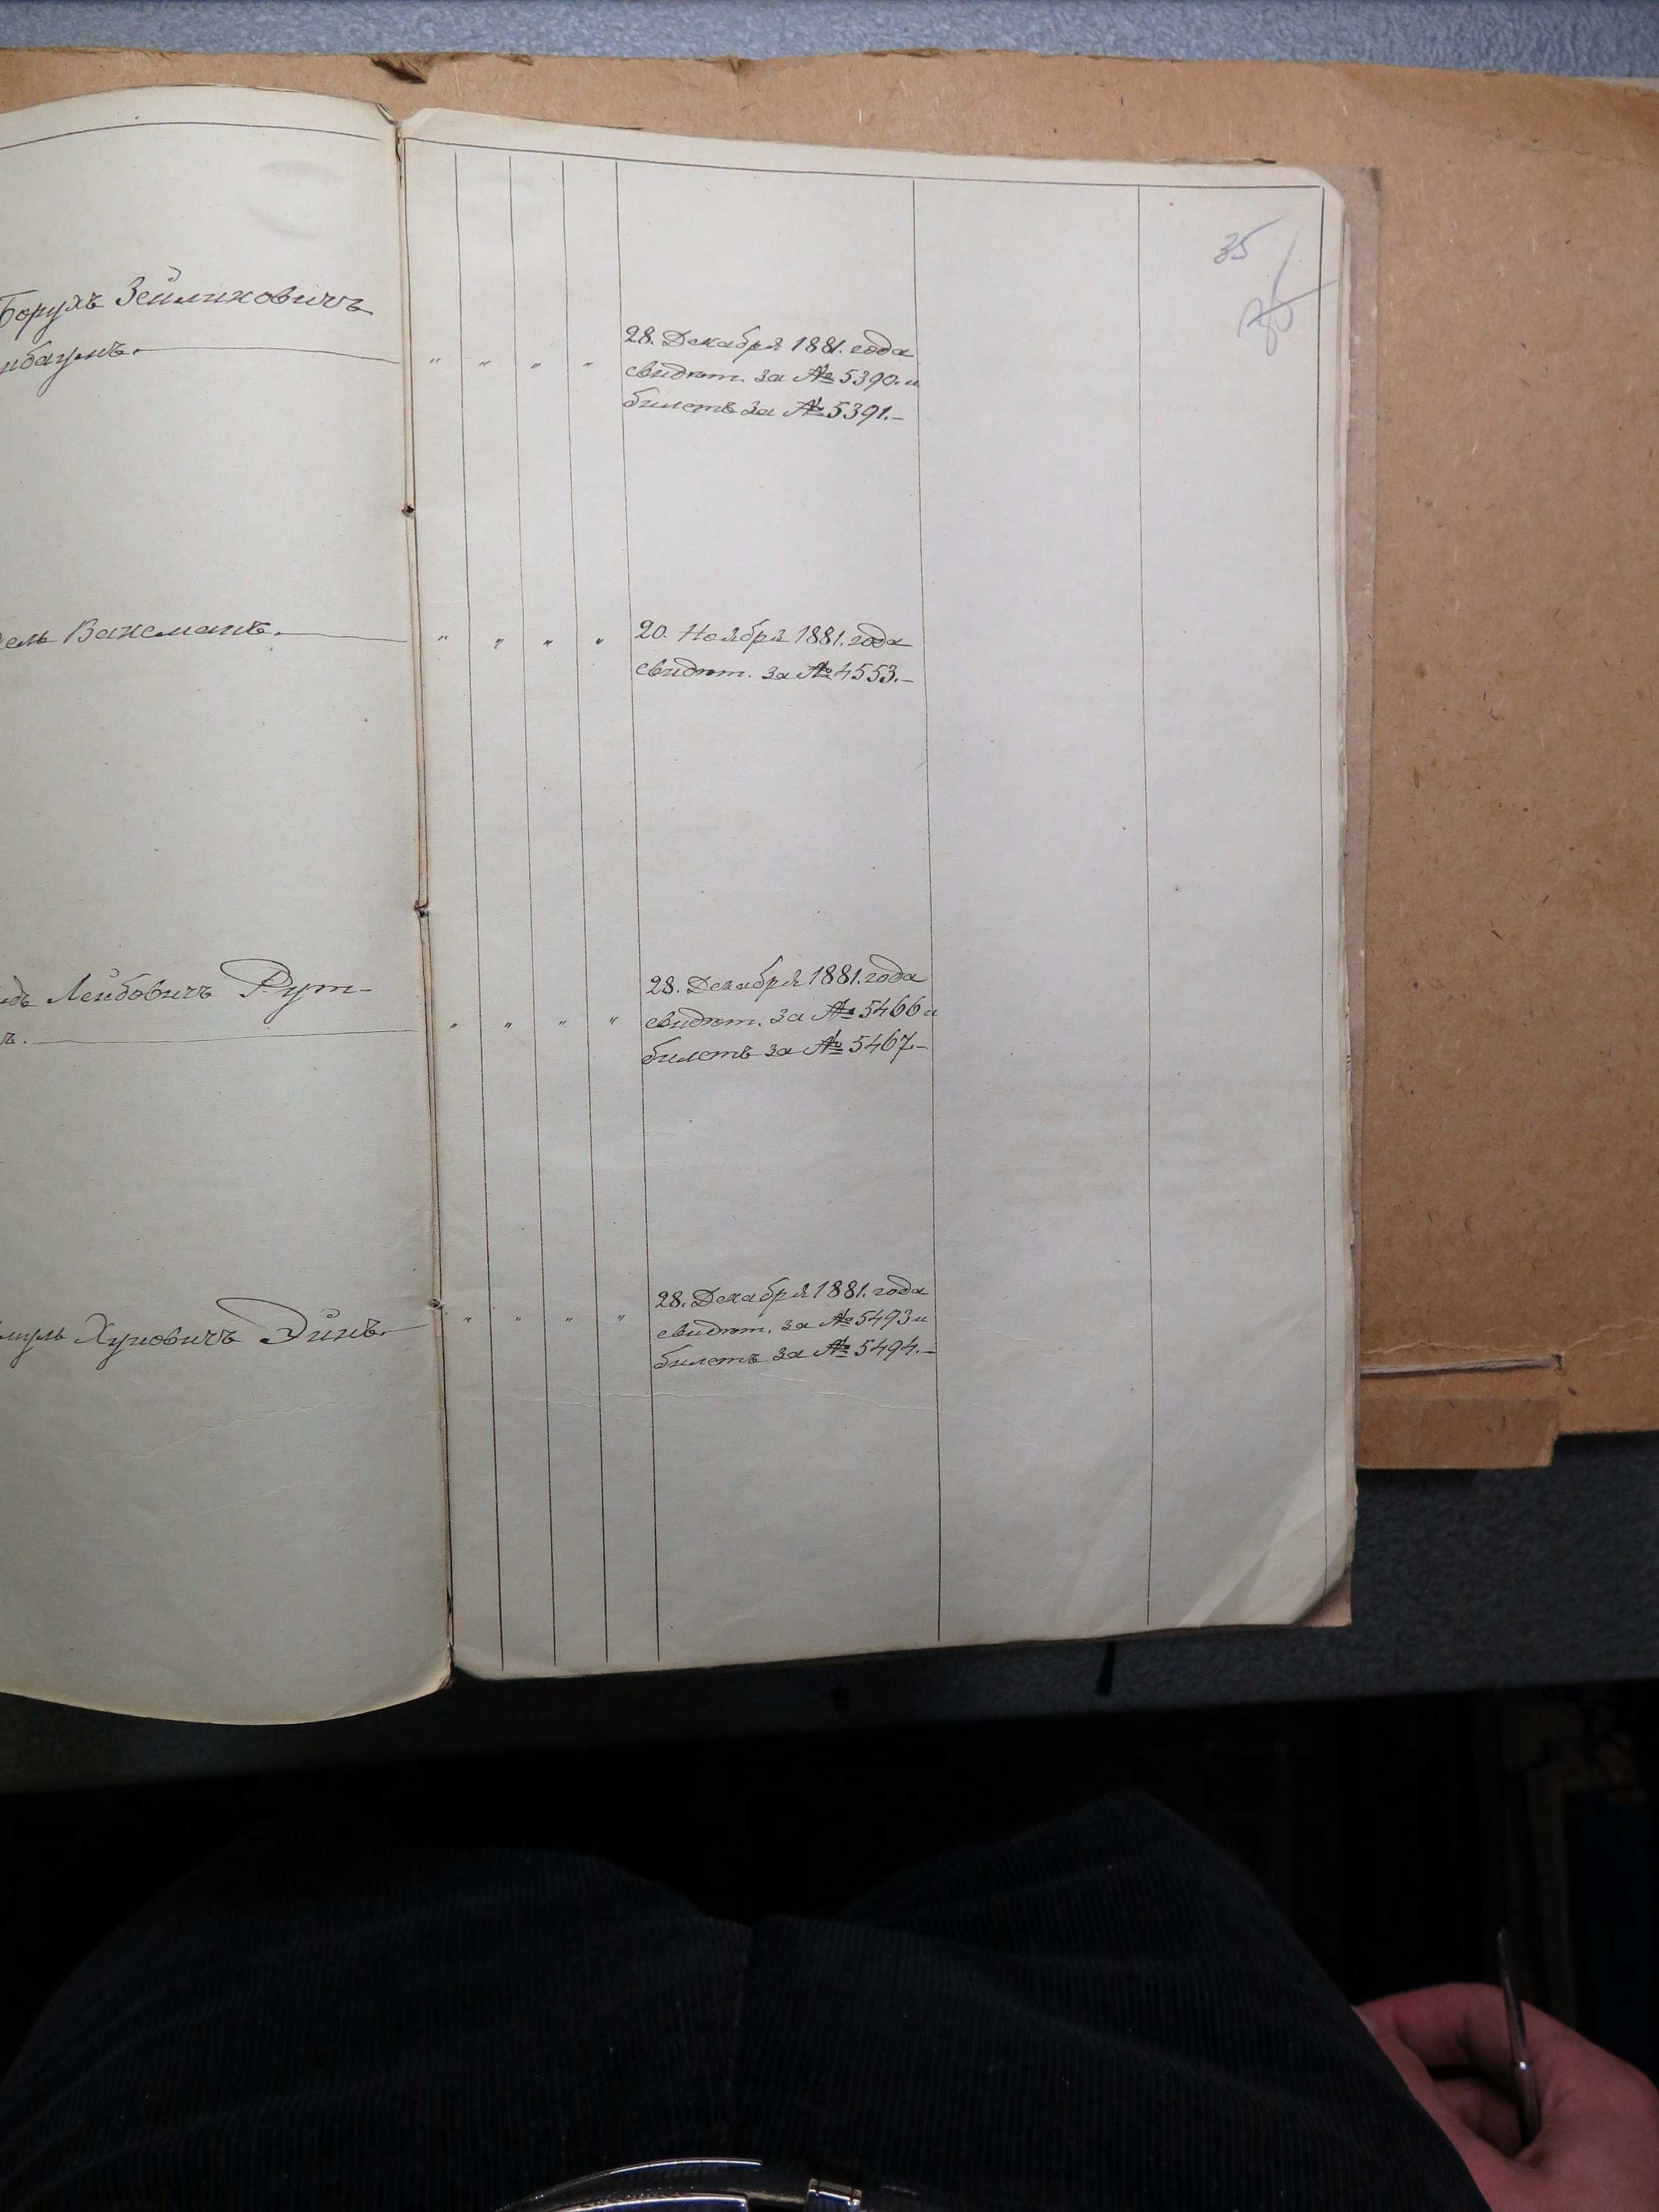 35
36
Борухъ Зейликовичъ
нбаумъ.
" " " "
28. Декабря 1881. года
свидѣт. за № 5390. и
билетъ за № 5391.–
ель Ваксманъ.
" " " "
20. Ноября 1881. года
свидѣт. за № 4553.–
идъ Лейбовичъ Рут-
ъ.
" " " "
28. Декабря 1881. года
свидѣт. за № 5466 и
билетъ за № 5467–
муль Хуновичъ Эйнъ.
" " " "
28. Декабря 1881. года
свидѣт. за № 5493 и
билетъ за № 5494.–